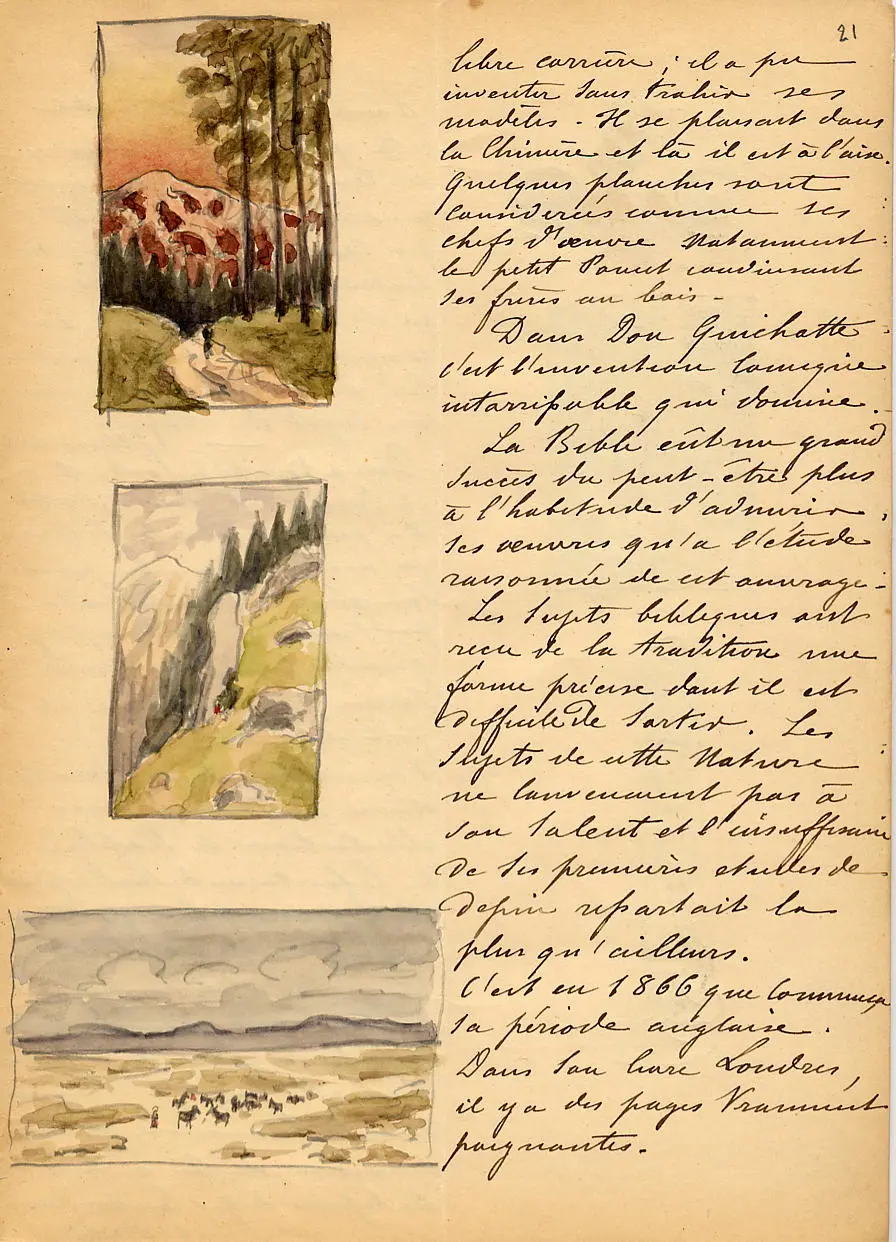 21
libre carrière ; il a pu
inventer sans trahir ses
modèles - Il se plaisait dans
la Chimère et là il est à l'aise.
Quelques planches sont
considérées comme ses
chefs d'œuvre notamment
le petit Poucet conduisant
ses frères au bois -
Dans Don Quichotte
c'est l'invention comique
intarissable qui domine.
La Bible eût un grand
succès du peut-être plus
à l'habitude d'admirer
ses œuvres qu'a l'étude
raisonnée de cet ouvrage -
Les sujets bibliques ont
recu de la tradition une
forme précise dont il est
difficile de sortir. Les
sujets de cette nature
ne convenaient pas à
son talent et l'insuffisance
de ses premières etudes de
dessin ressortait la
plus qu'ailleurs.
C'est en 1866 que commença
sa période anglaise.
Dans son livre Londres,
il y a des pages vraiment
poignantes.